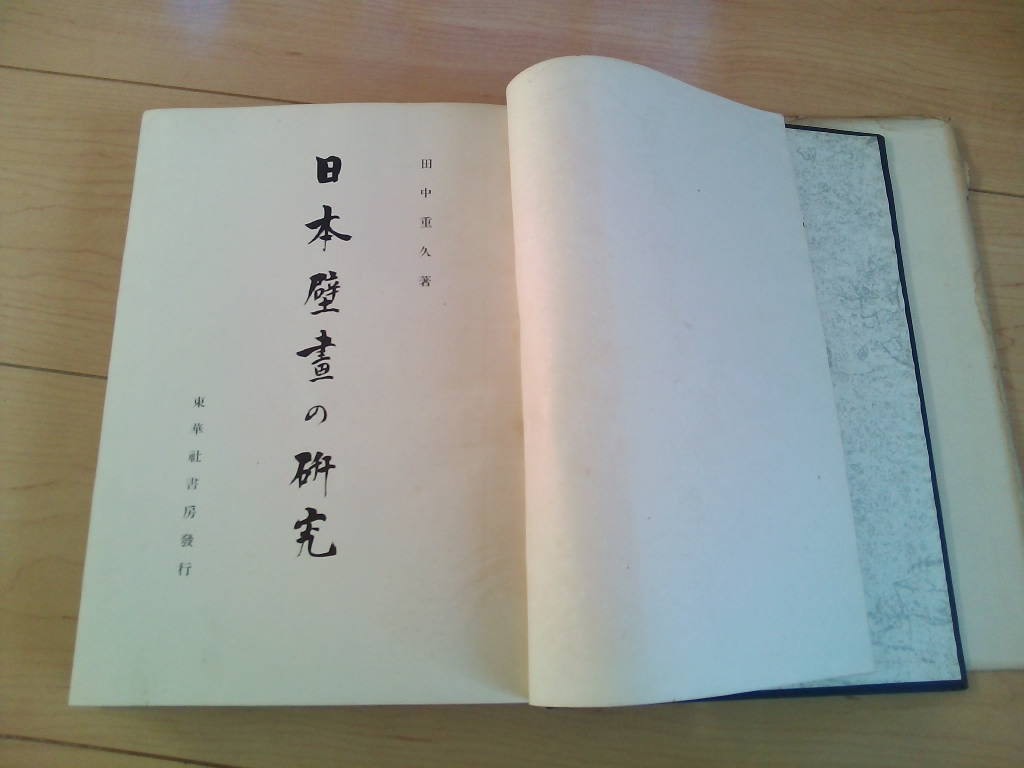 田中重久著
日本壁畫の研究
東華社書房發行